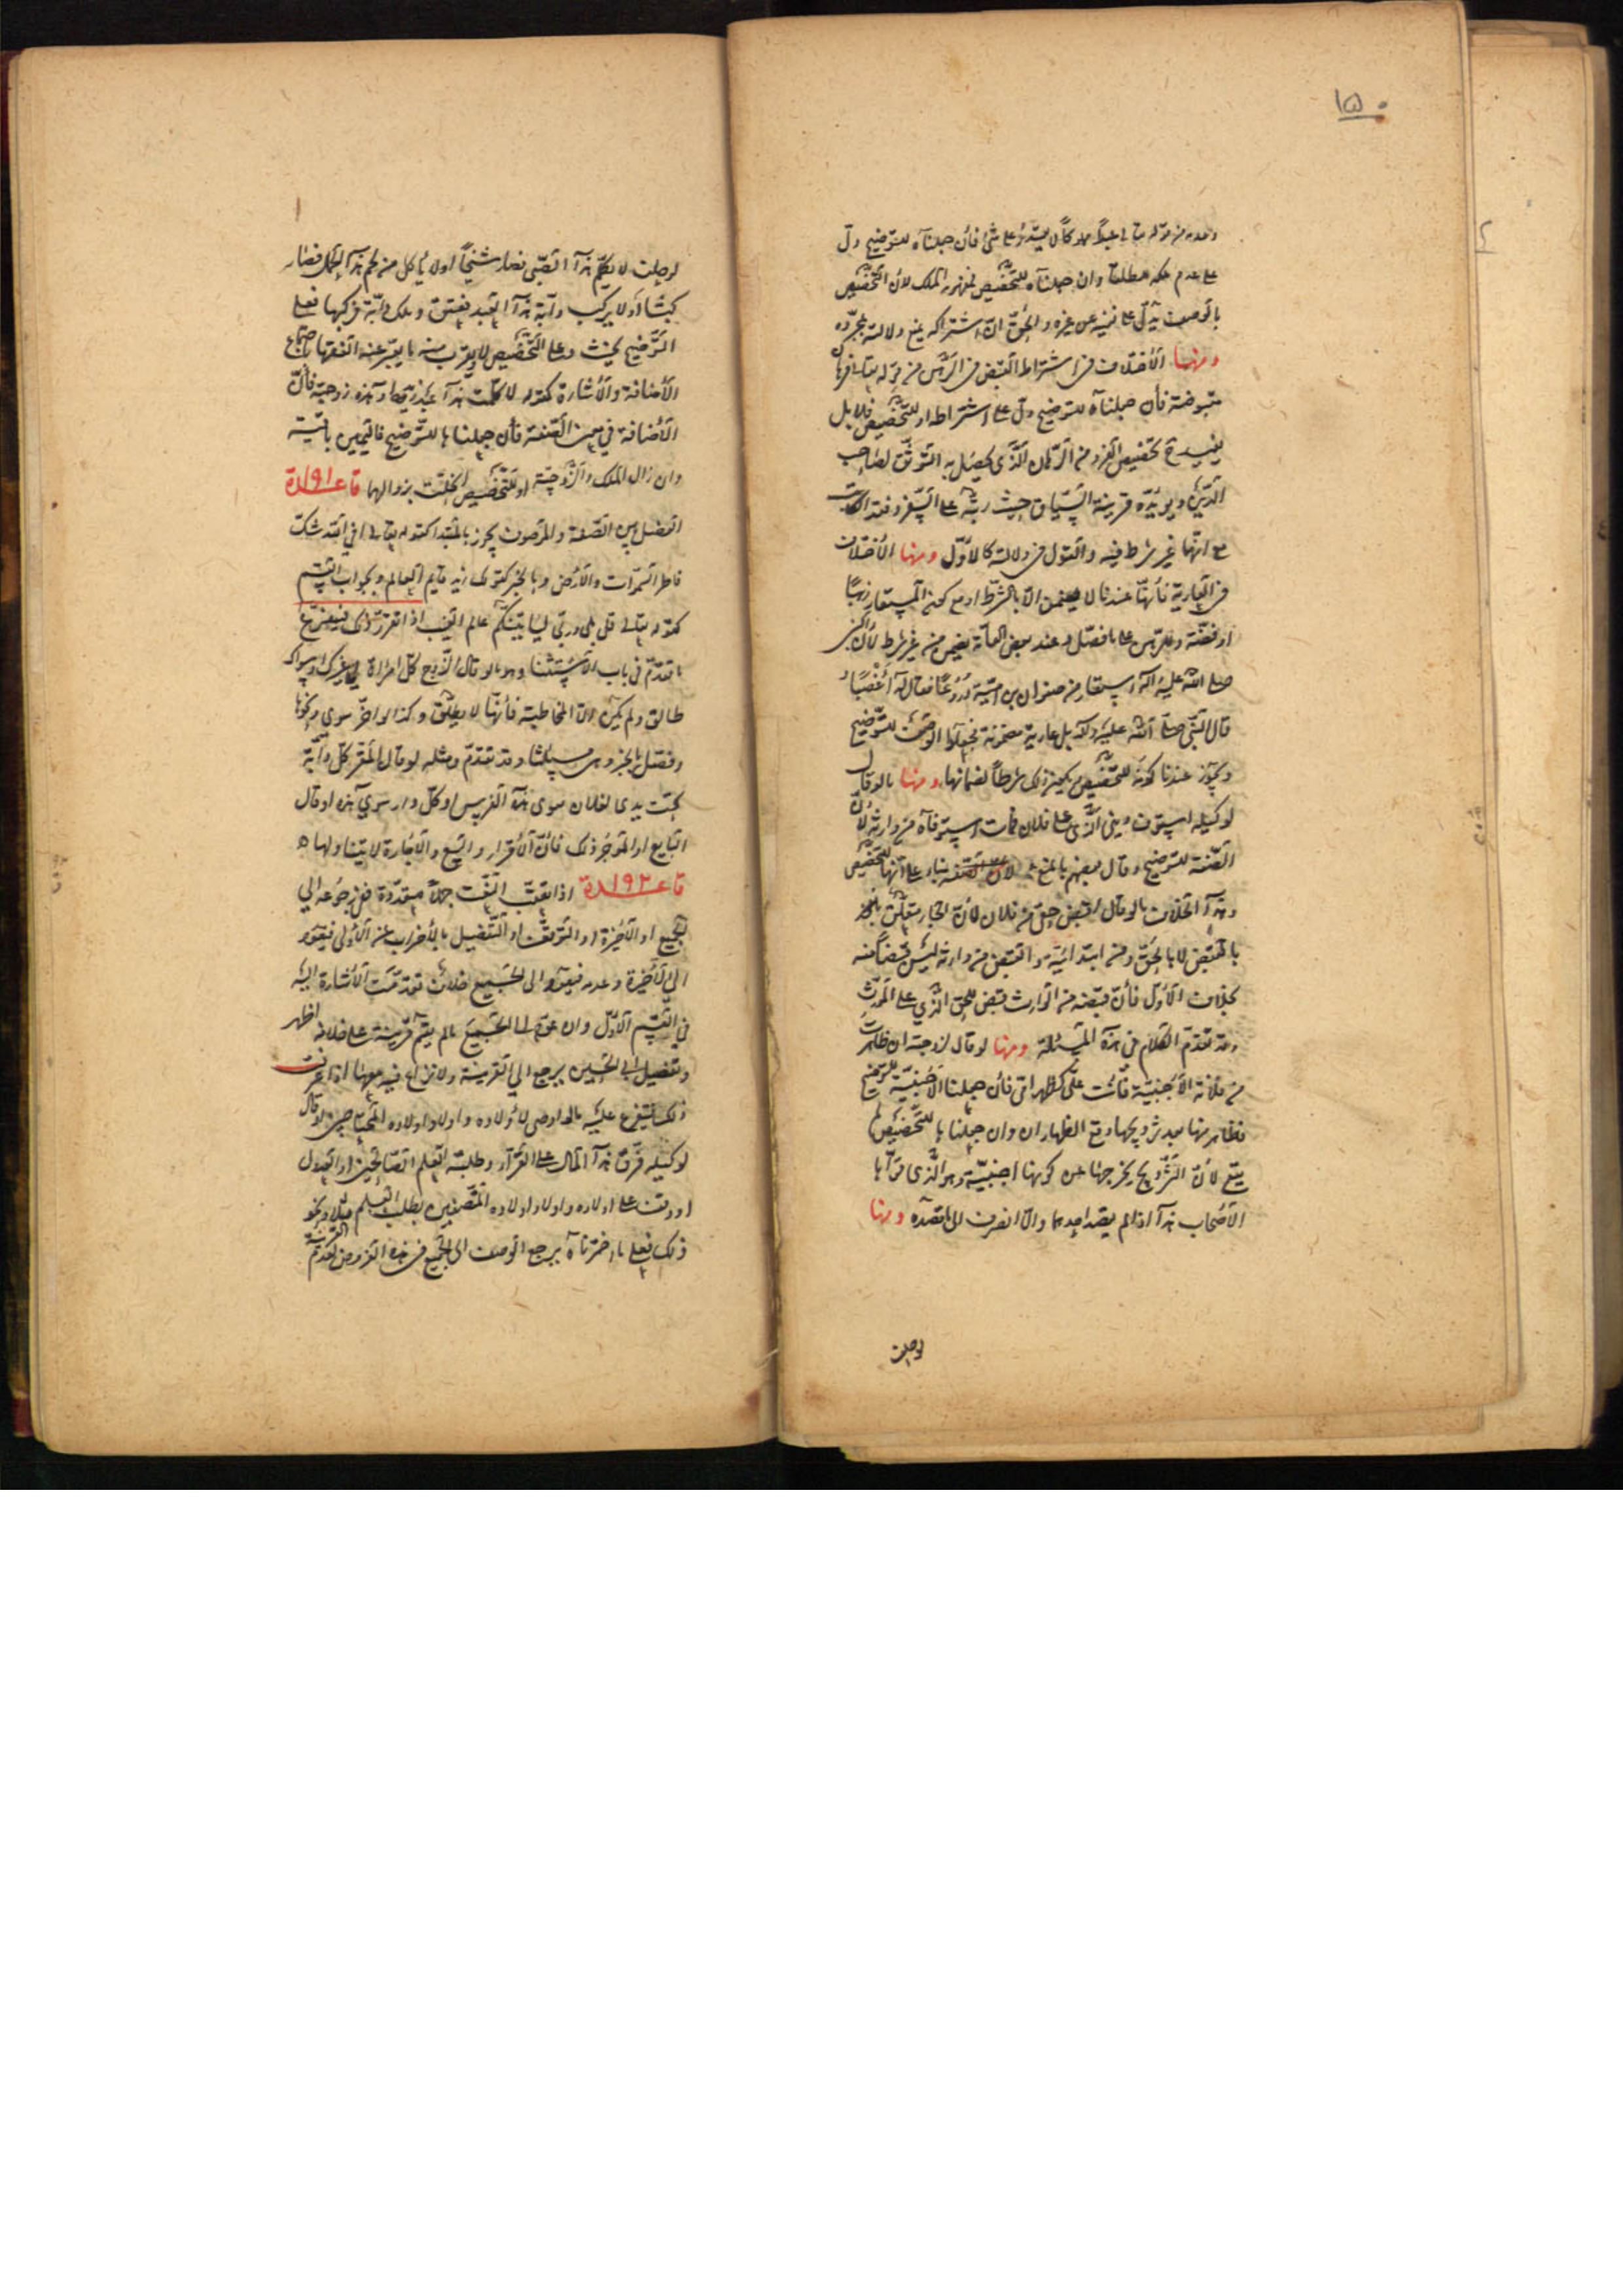 ١٥٠
وعدمه من قوله تعالى عبداً مملوكاً لا يقدر على شئ فأن جعلناه للتوضيح دل
على عدم ملكه مطلقا وان جعلناه للتخصيص فمفهومه الملك لأن التخصيص
بالوصف يدل على نفيه عن غيره والحق ان اشتراكه يمنع دلالته بمجرده
ومنها الأختلاف في اشتراط القبض في الرهن من قوله تعالى فرهان
مقبوضة فأن جعلناه للتوضيح دل على اشتراطه او للتخصيص فلا بل
يفيد ح تخصيص الفرد من الرهان الذي يحصل به التوثق لصاحب
الدين ويؤيده قرينة السياق حيث رتبه على السفر وفقد الكاتب
مع انهما غير شرط فيه والقول في دلالته كالأول ومنها الأختلاف
في العارية فأنها عندنا لا يضمن الا بالشرط او مع كون المستعار ذهبا
او فضة وعند بعض العامة يضمن من غير شرط لأن النبي
صلى الله عليه وآله استعار من صفوان بن امية دروعا فقال له أغصبا
قال النبي صلى الله عليه وآله بل عارية مضمونة فجعلوا الوصف للتوضيح
ويجوز عندنا كونه للتخصيص فيكون ذلك شرطاً لضمانها ومنها ما لو قال
لوكيله استوف ديني الذي على فلان فمات استوفاه من وارثه لأن
الصفة للتوضيح وقال بعضهم بالمنع بناء على انها للتخصيص
وهذا بخلاف ما لو قال اقبض حقي من فلان لأن الجار متعلق
بأقبض لا بالحق ومن ابتدائية والقبض من وارثه ليس قبضاً منه
بخلاف الأول فأن قبضه من الوارث قبض للحق الذي على المورث
وقد تقدم الكلام في هذه المسئلة ومنها لو قال لزوجته ان ظاهرت
من فلانة الأجنبية فأنت علي كظهر امي فأن جعلنا الأجنبية للتوضيح
فظاهر منها بعد تزويجها وقع الظهاران وان جعلناها للتخصيص لم
يقع لأن التزويج يخرجها عن كونها اجنبية وهو الذي قواه
الأصحاب هذا اذا لم يقصد احدهما والا انصرف الى ما قصده ومنها
لو حلف
لو حلف لا يكلم هذا الصبي فصار شيخاً او لا يأكل من لحم هذا الحمل فصار
كبشا او لا يركب دابة هذا العبد فعتق وملك دابة فركبها فعلى
التوضيح يحنث وعلى التخصيص لا ويقرب منه ما يعبر عنه الفقهاء باجتماع
الأضافة والأشارة كقوله لا كلمت هذا عبد زيد او هذه زوجته فأن
الأضافة في معنى الصفة فأن جعلناها للتوضيح فاليمين باقية
وان زال الملك والزوجية او للتخصيص انحلت بزوالهما قاعدة ١٩١
الفصل بين الصفة والموصوف يجوز بالمبتدا كقوله تعالى افي الله شك
فاطر السموات والأرض وبالخبر كقولك زيد قائم العالم وبجواب القسم
كقوله تعالى قل بلى وربي ليأتينكم عالم الغيب اذا تقرر ذلك فيتفرع
ما تقدم في باب الأستثنا وهو ما لو قال الزوج كل امراة لي غيرك او سواك
طالق ولم يكن له الا المخاطبة فأنها لا يطلق وكذا لو اخر سوى ونحوها
وفصل بالخبر وهي مسئلتنا وقد تقدم ومثله لو قال المقر كل دابة
تحت يدي لفلان سوى هذه الفرس او كل دار سوى هذه او قال
البايع او الموجر ذلك فأن الأقرار والبيع والأجارة لا يتناولها
قاعدة ١٩٢ اذا تعقب الصفت جملا متعددة ففي رجوعه الى
الجميع او الأخيرة او التوقف او التفصيل بالأضراب عن الأولى فيعود
الى الأخيرة وعدمه فيعود الى الجميع خلاف تقدمت الأشارة اليه
في القسم الأول وان عوده الى الجميع ما لم يقم قرينة على خلافه اظهر
وتفصيل ابي الحسين يرجع الى القرينة ولا نزاع فيه معها اذا عرفت
ذلك فيتفرع عليه ما لو اوصى لأولاده واولاد اولاده المحتاجين او قال
لوكيله فرق هذا المال على الفقرآء وطلبة العلم الصالحين او العدول
او وقف على اولاده واولاد اولاده المتصفين بطلب العلم مثلا ونحو
ذلك فعلى ما اخترناه يرجع الوصف الى الجميع في هذه الفروض لعدم القرينة